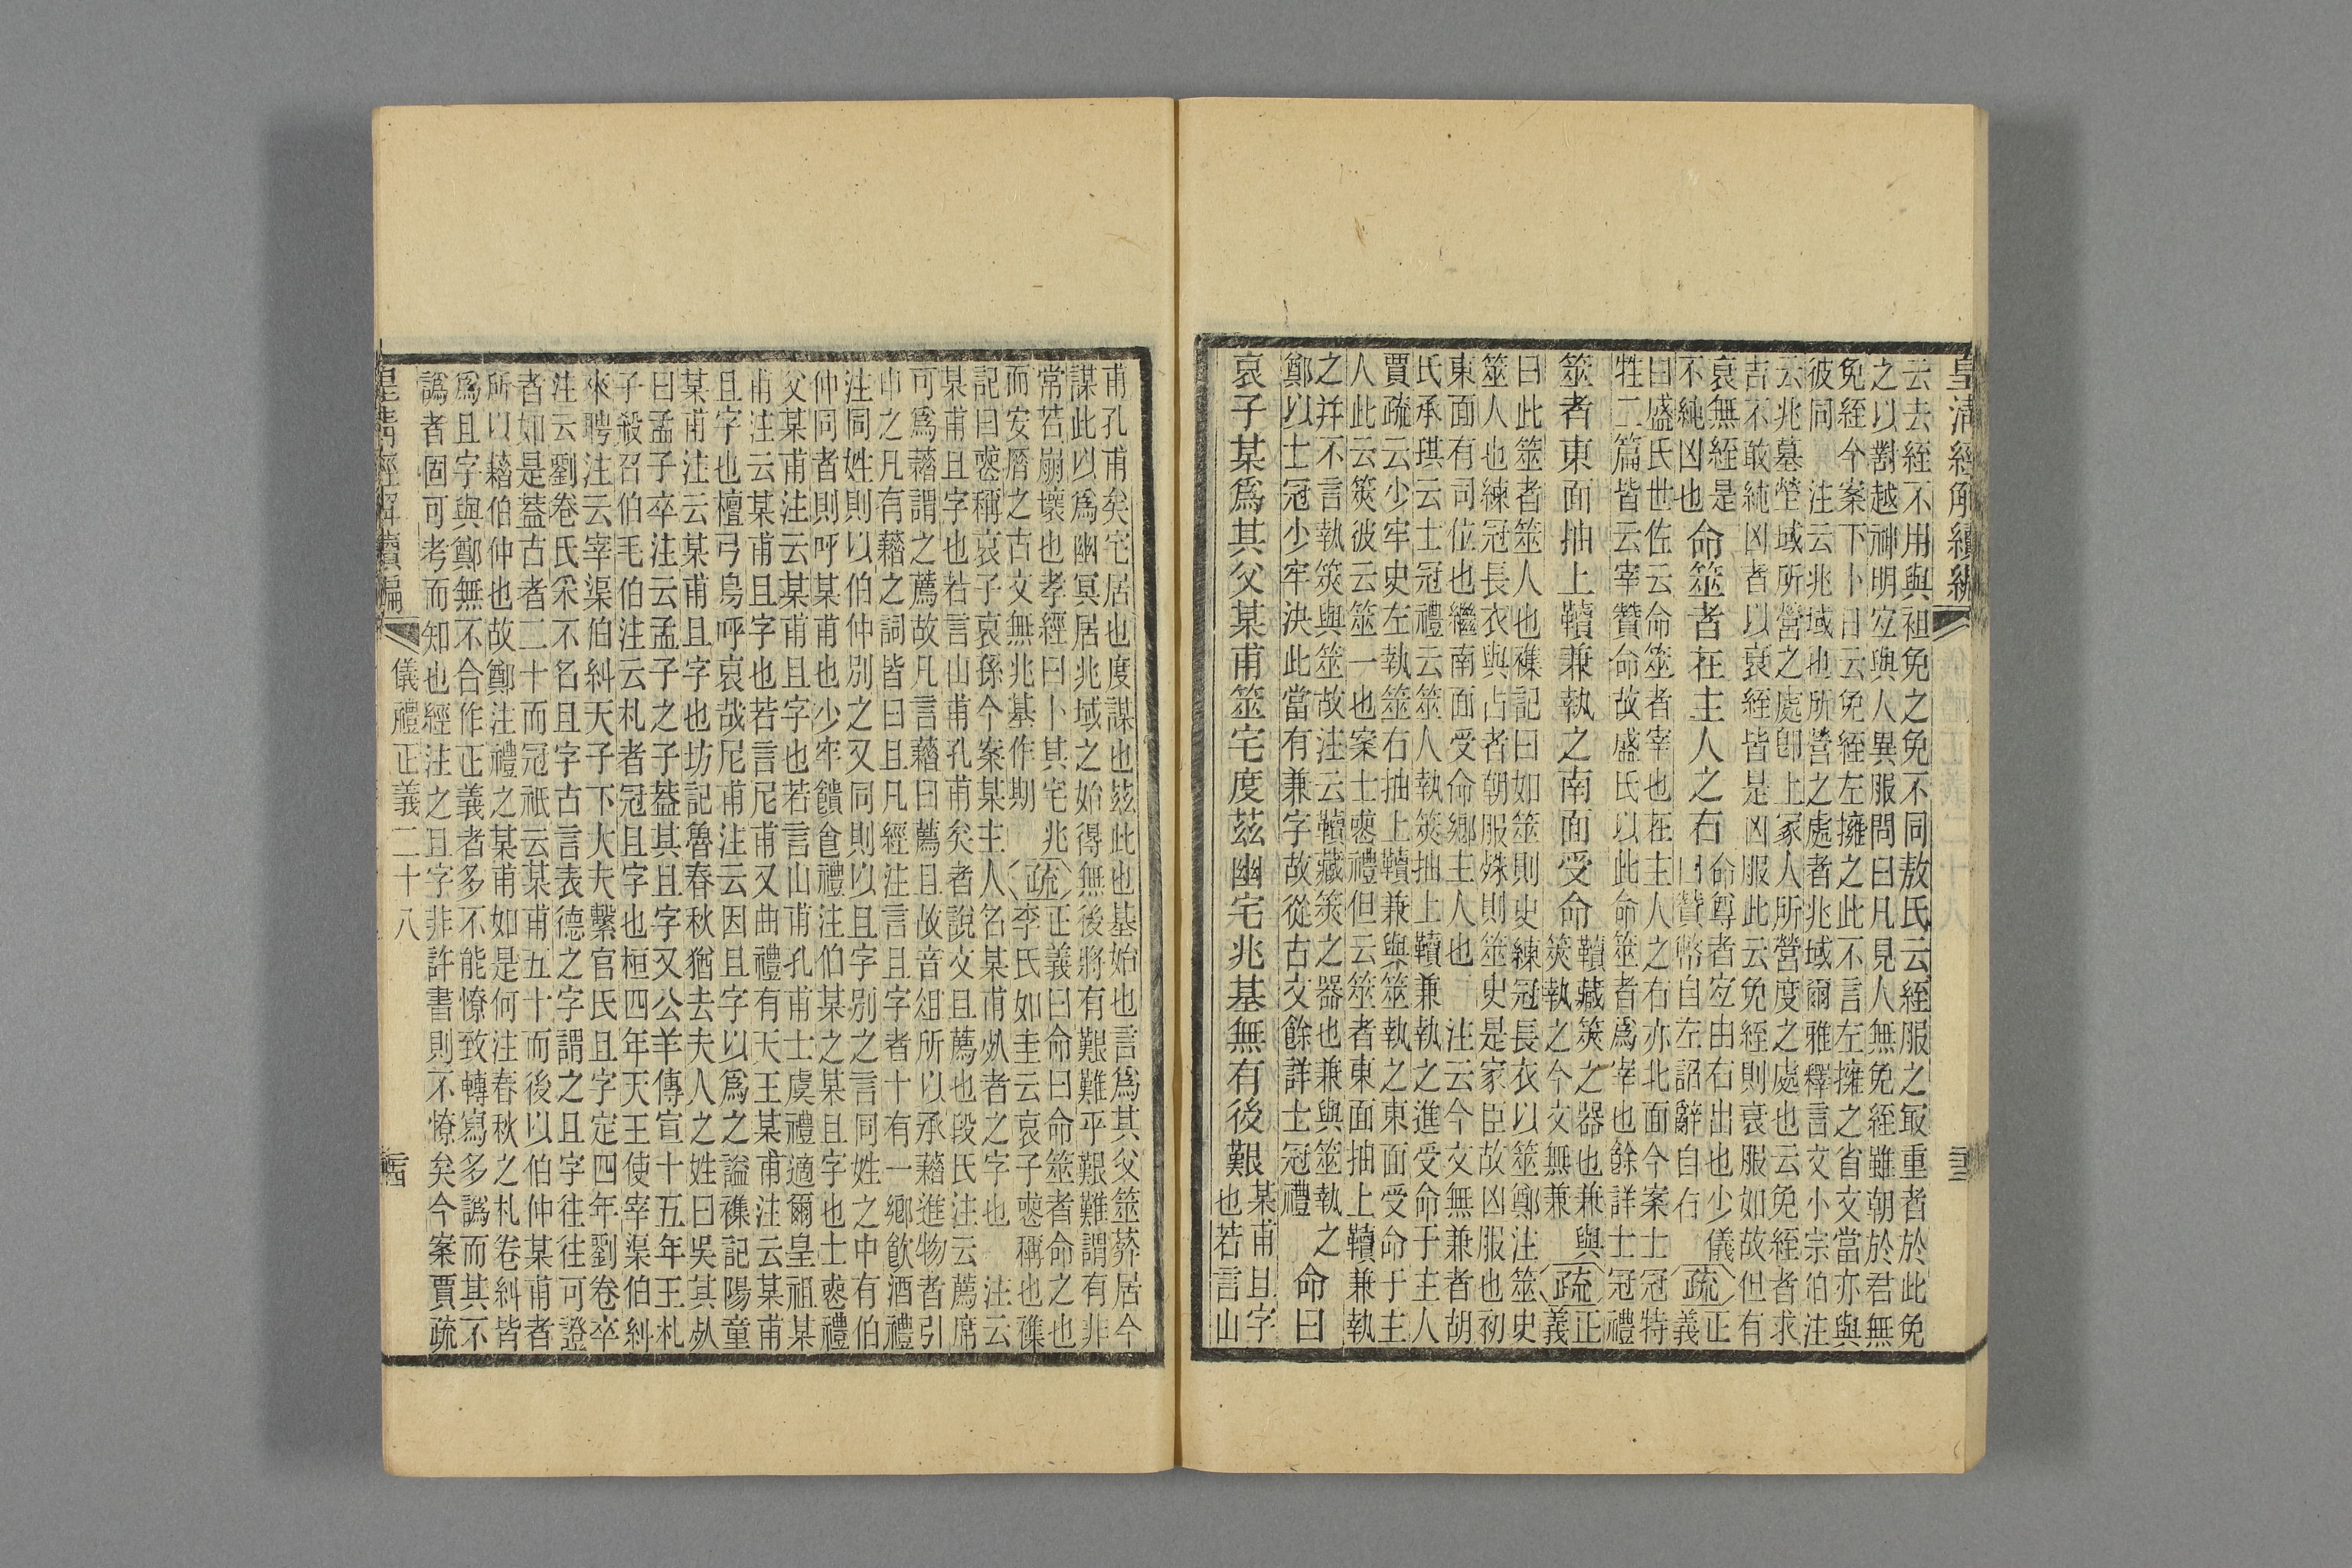 皇清經解續編
去去絰不用與袒免之免不同敖氏云絰服之最重者於此免
之以對越神明宜與人異服問曰凡見人無免絰雖朝於君無
免絰今案下卜日云免絰左擁之此不言左擁之省文當亦與
彼同　注云兆域也所營之處者兆域爾雅釋言文小宗伯注
云兆墓塋域所營之處卽上冢人所營度之處也云免絰者求
吉不敢純凶者以衰絰皆是凶服此云免絰則衰服如故但有
衰無絰是
不純凶也
命筮者在主人之右
命尊者宜由右出也少儀
曰贊幣自左詔辭自右
疏
正
義
曰盛氏世佐云命筮者宰也在主人之右亦北面今案士冠特
牲二篇皆云宰贊命故盛氏以此命筮者爲宰也餘詳士冠禮
筮者東面抽上韇兼執之南面受命
韇藏筴之器也兼與
筴執之今文無兼
疏
正
義
曰此筮者筮人也襍記曰如筮則史練冠長衣以筮鄭注筮史
筮人也練冠長衣與占者朝服殊則筮史是家臣故凶服也初
東面有司位也繼南面受命鄉主人也　注云今文無兼者胡
氏承珙云士冠禮云筮人執筴抽上韇兼執之進受命于主人
賈疏云少牢史左執筮右抽上韇兼與筮執之東面受命于主
人此云筴彼云筮一也案士喪禮但云筮者東面抽上韇兼執
之并不言執筴與筮故注云韇藏筴之器也兼與筮執之
鄭以士冠少牢決此當有兼字故從古文餘詳士冠禮
命曰
哀子某爲其父某甫筮宅度茲幽宅兆基無有後艱
某甫且字
也若言山
甫孔甫矣宅居也度謀也茲此也基始也言爲其父筮葬居今
謀此以爲幽冥居兆域之始得無後將有艱難乎艱難謂有非
常若崩壞也孝經曰卜其宅兆
而安厝之古文無兆基作期
疏
正義曰命曰命筮者命之也
李氏如圭云哀子喪稱也襍
記曰喪稱哀子哀孫今案某主人名某甫死者之字也　注云
某甫且字也若言山甫孔甫矣者說文且薦也段氏注云薦席
可爲藉謂之薦故凡言藉曰薦且故音俎所以承藉進物者引
申之凡有藉之詞皆曰且凡經注言且字者十有一鄉飲酒禮
注同姓則以伯仲別之又同則以且字別之言同姓之中有伯
仲同者則呼某甫也少牢饋食禮注伯某之某且字也士喪禮
父某甫注云某甫且字也若言山甫孔甫士虞禮適爾皇祖某
甫注云某甫且字也若言尼甫又曲禮有天王某甫注云某甫
且字也檀弓烏呼哀哉尼甫注云因且字以爲之謚襍記陽童
某甫注云某甫且字也坊記魯春秋猶去夫人之姓曰吳其死
曰孟子卒注云孟子之子蓋其且字又公羊傳宣十五年王札
子殺召伯毛伯注云札者冠且字也桓四年天王使宰渠伯糾
來聘注云宰渠伯糾天子下大夫繫官氏且字定四年劉卷卒
注云劉卷氏采不名且字古言表德之字謂之且字往往可證
者如是蓋古者二十而冠祇云某甫五十而後以伯仲某甫者
所以藉伯仲也故鄭注禮之某甫如是何注春秋之札卷糾皆
爲且字與鄭無不合作正義者多不能憭致轉寫多譌而其不
譌者固可考而知也經注之且字非許書則不憭矣今案賈疏
皇清經解續編　儀禮正義二十八